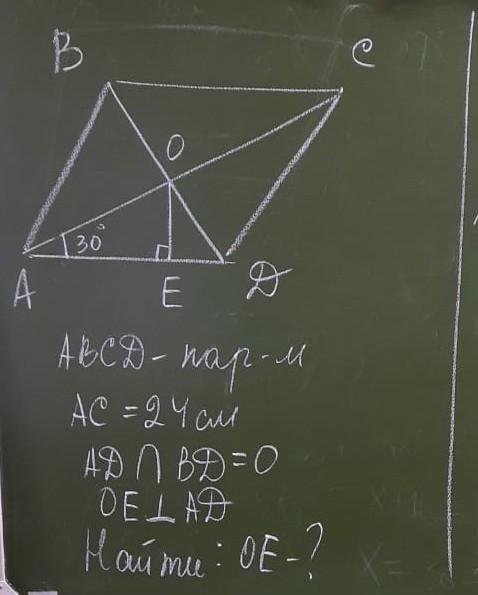 B C
O
30°
A E D
ABCD - пар-м
AC = 24 см
AD ∩ BD = O
OE ⊥ AD
Найти: OE - ?